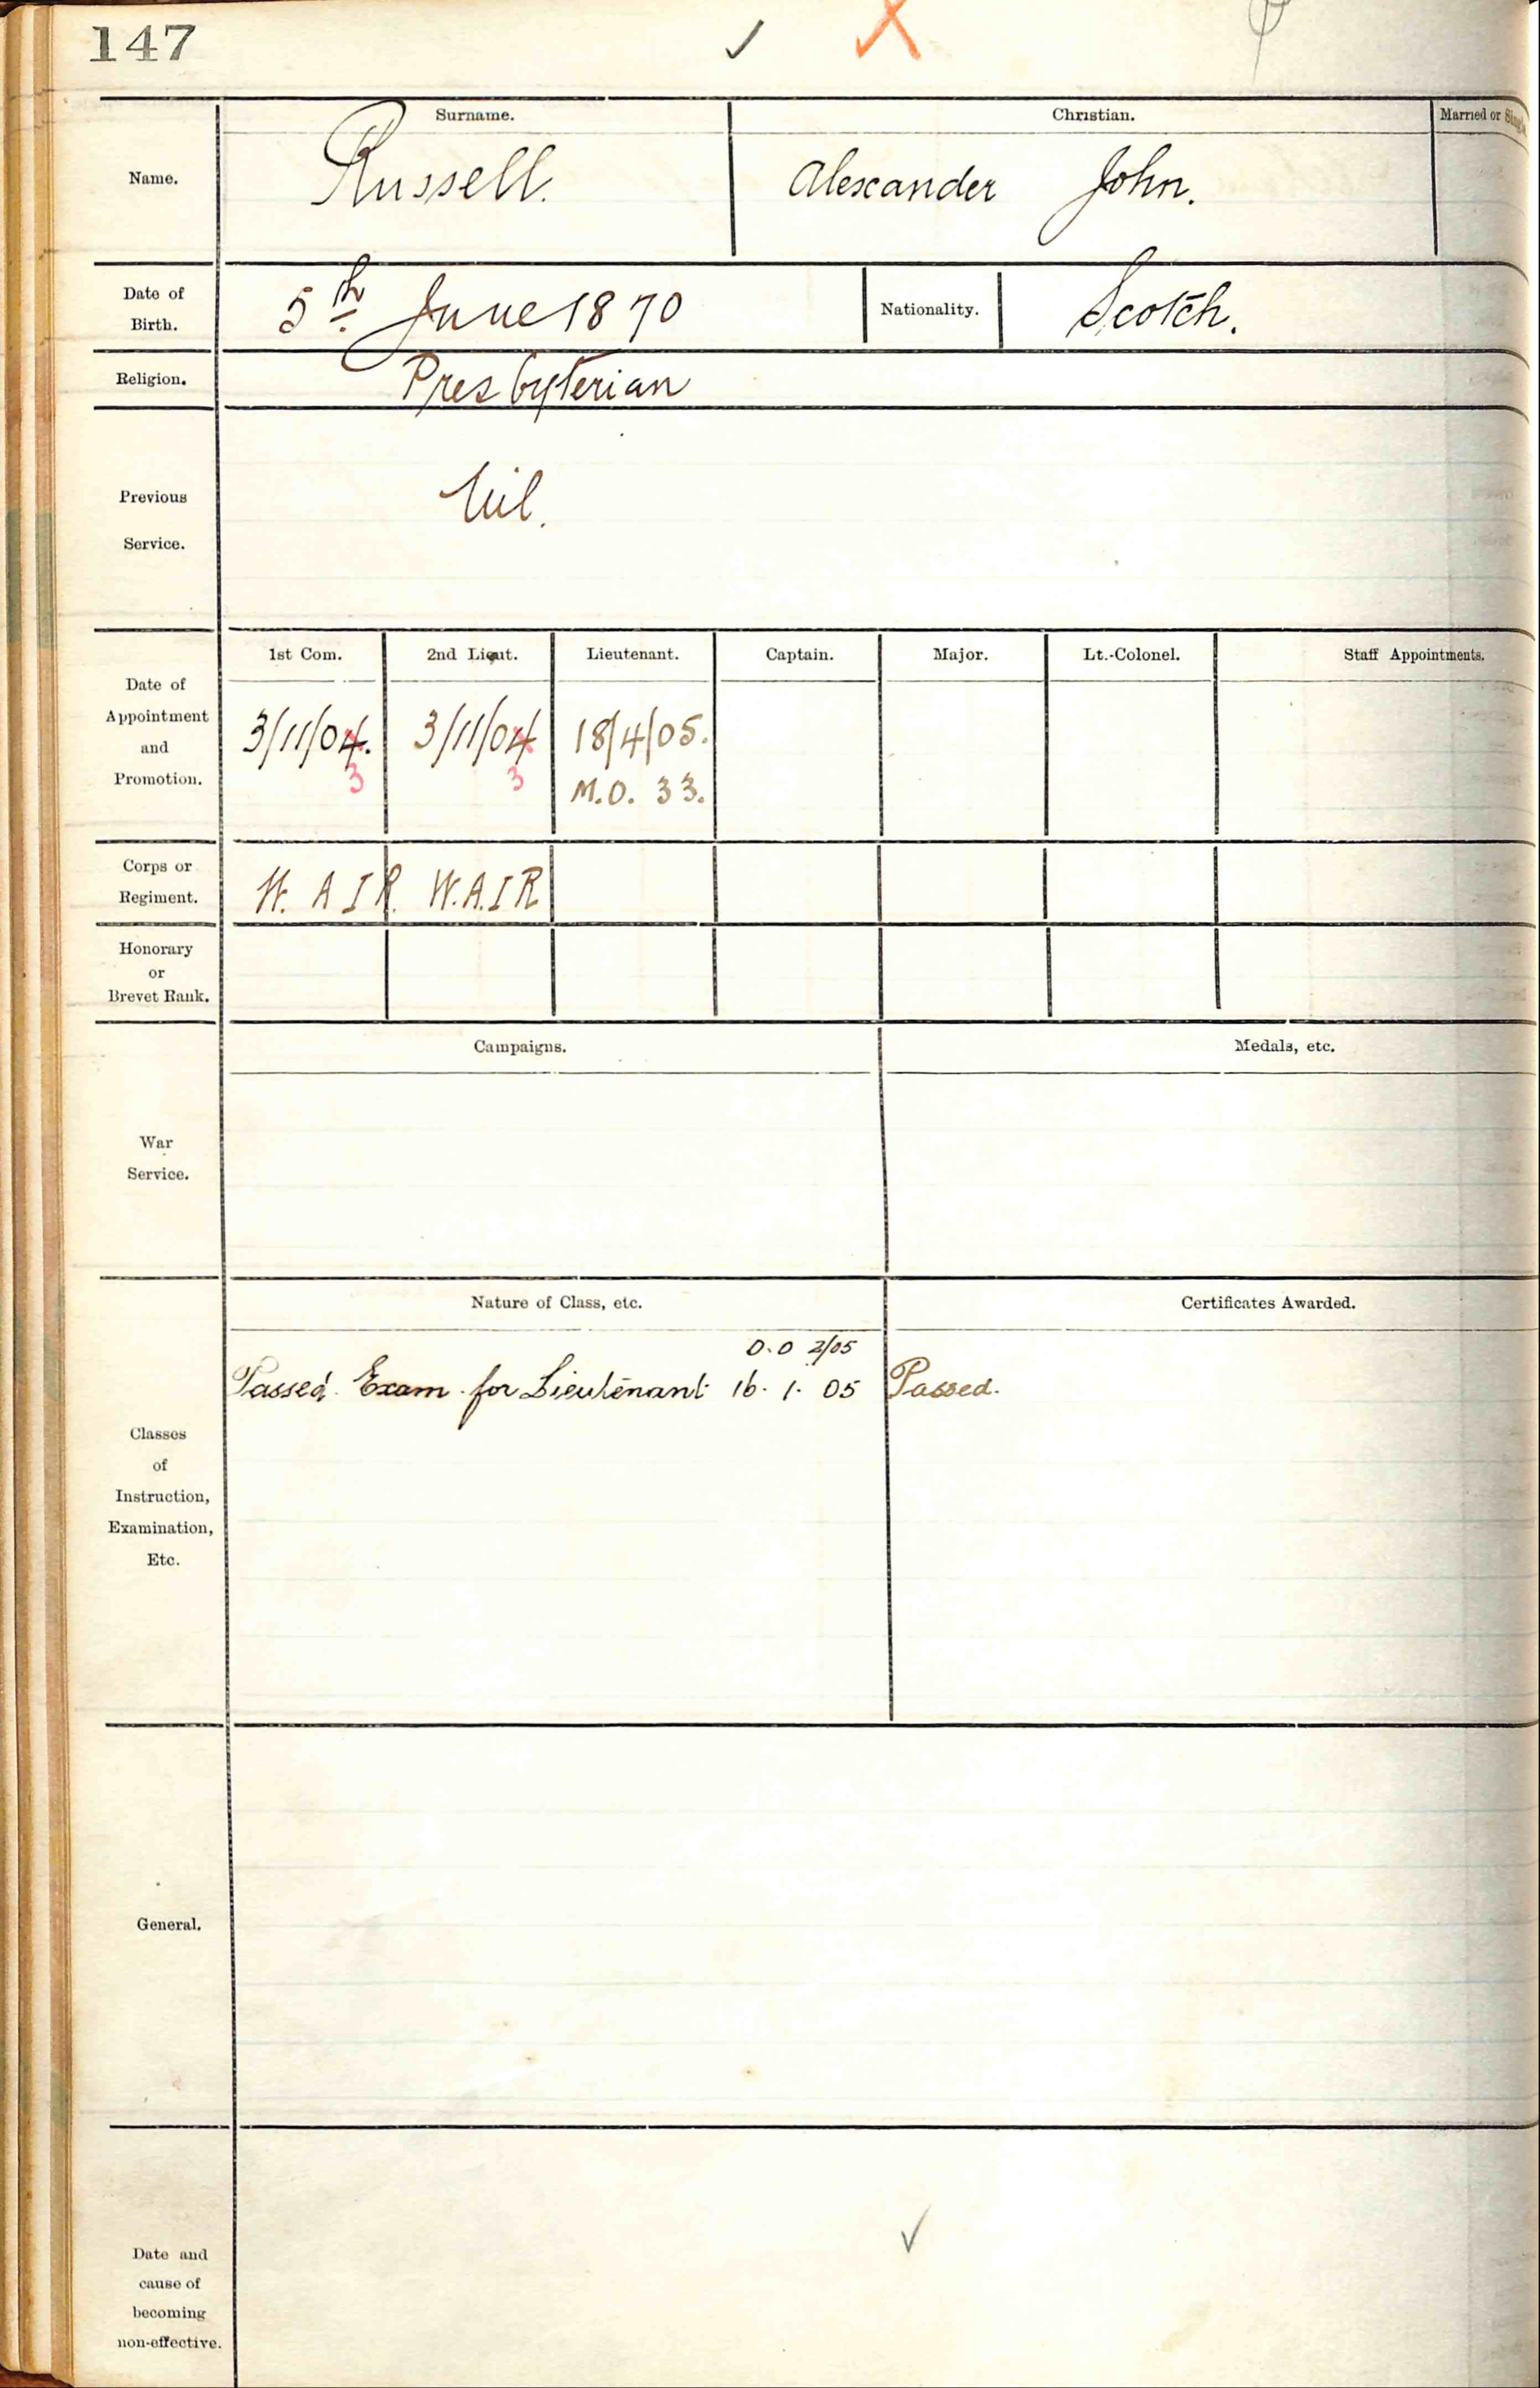 147
Surname. Christian. Married or Single
Name. Russell. Alexander John.
Date of
Birth. 5th June 1870 Nationality. Scotch.
Religion. Presbyterian
Previous
Service. Nil.
1st Com. 2nd Lieut. Lieutenant. Captain. Major. Lt.-Colonel. Staff Appointments.
Date of
Appointment
and
Promotion.
3/11/04. 3/11/04 18/4/05.
3 3 M.O. 33.
Corps or
Regiment. W. A I R. W.A.I R
Honorary
or
Brevet Rank.
Campaigns. Medals, etc.
War
Service.
Nature of Class, etc. Certificates Awarded.
O.O 2/05
Passed Exam for Lieutenant 16. 1. 05 Passed.
Classes
of
Instruction,
Examination,
Etc.
General.
Date and
cause of
becoming
non-effective.